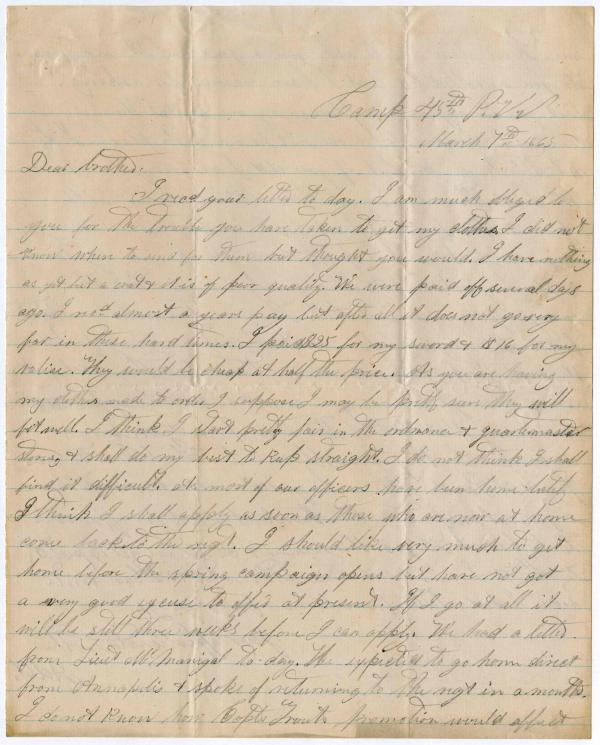 Camp 45th P.V.V
March 7th 1865
Dear brother.
I recd your letter to day. I am much obliged to
you for the trouble you have taken to get my clothes. I did not
know when to send for them but thought you would. I have nothing
as yet but a coat & it is of poor quality. We were paid off several days
ago. I recd almost a years pay but after all it does not go very
far in these hard times. I paid $25 for my sword & $16 for my
valise. They would be cheap at half the price. As you are having
my clothes made to order I suppose I may be pretty sure they will
fit well. I think I start pretty fair in the ordnance & quartermaster
stores, & shall do my best to keep straight. I do not think I shall
find it difficult. As most of our officers have been home lately
I think I shall apply as soon as those who are now at home
come back to the regt. I should like very much to get
home before the spring campaign opens but have not got
a very good excuse to offer at present. If I go at all it
will be still three weeks before I can apply. We had a letter
from Lieut McManigal to-day. He expected to go home direct
from Annapolis & spoke of returning to the regt in a month.
I do not know how Capts Trouts promotion would affect